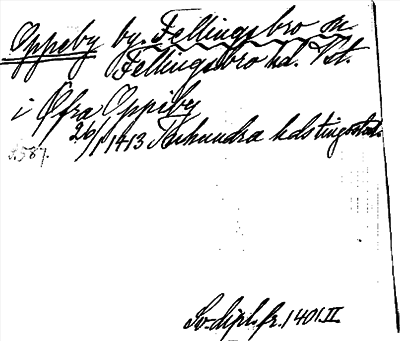 Oppeby by. Fellingsbro sn
Fellingsbro hd. Vst.
i Øfra Oppiby
26/1 1413 hdstingsstad.
s. 587.
Sv. dipl. fr. 1401. II